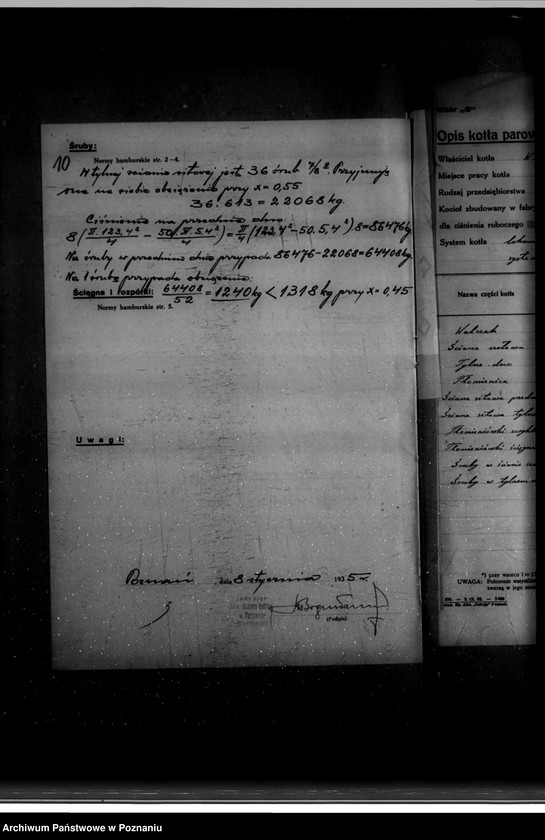 Śruby:
10
Normy hamburskie str. 2-4.
W tylnej ścianie sitowej jest 36 śrub 7/8". Przyjmuje
one na siebie obciążenie przy x = 0,55
36 . 613 = 22068 kg.
Ciśnienie na przednie dno:
8 (π.123,4²/4 − 50.π.5,4²/4) = π/4 (123,4² − 50.5,4²) 8 = 86476 kg
Na śruby w przednim dnie przypada 86476 − 22068 = 64408 kg.
Na 1 śrubę przypada obciążenie
Ścięgna i rozpórki: 64408/52 = 1240 kg < 1318 kg przy x = 0,45
Normy hamburskie str. 5.
Uwagi:
Poznań dnia 8 stycznia 1935 r.
(Podpis)
Wzór „G"
Opis kotła parow
Właściciel kotła
Miejsce pracy kotła
Rodzaj przedsiębiorstwa
Kocioł zbudowany w fabr
dla ciśnienia roboczego
System kotła
Nazwa części kotła
Walczak
Ściana
Tylne dno
Płomienica
Ściana sitowa przed
Ściana sitowa tyln
Płomieniówki
Płomieniówki
Śruby w ścianie
Śruby w tylnem
UWAGA: Położenie wszystkich
Archiwum Państwowe w Poznaniu